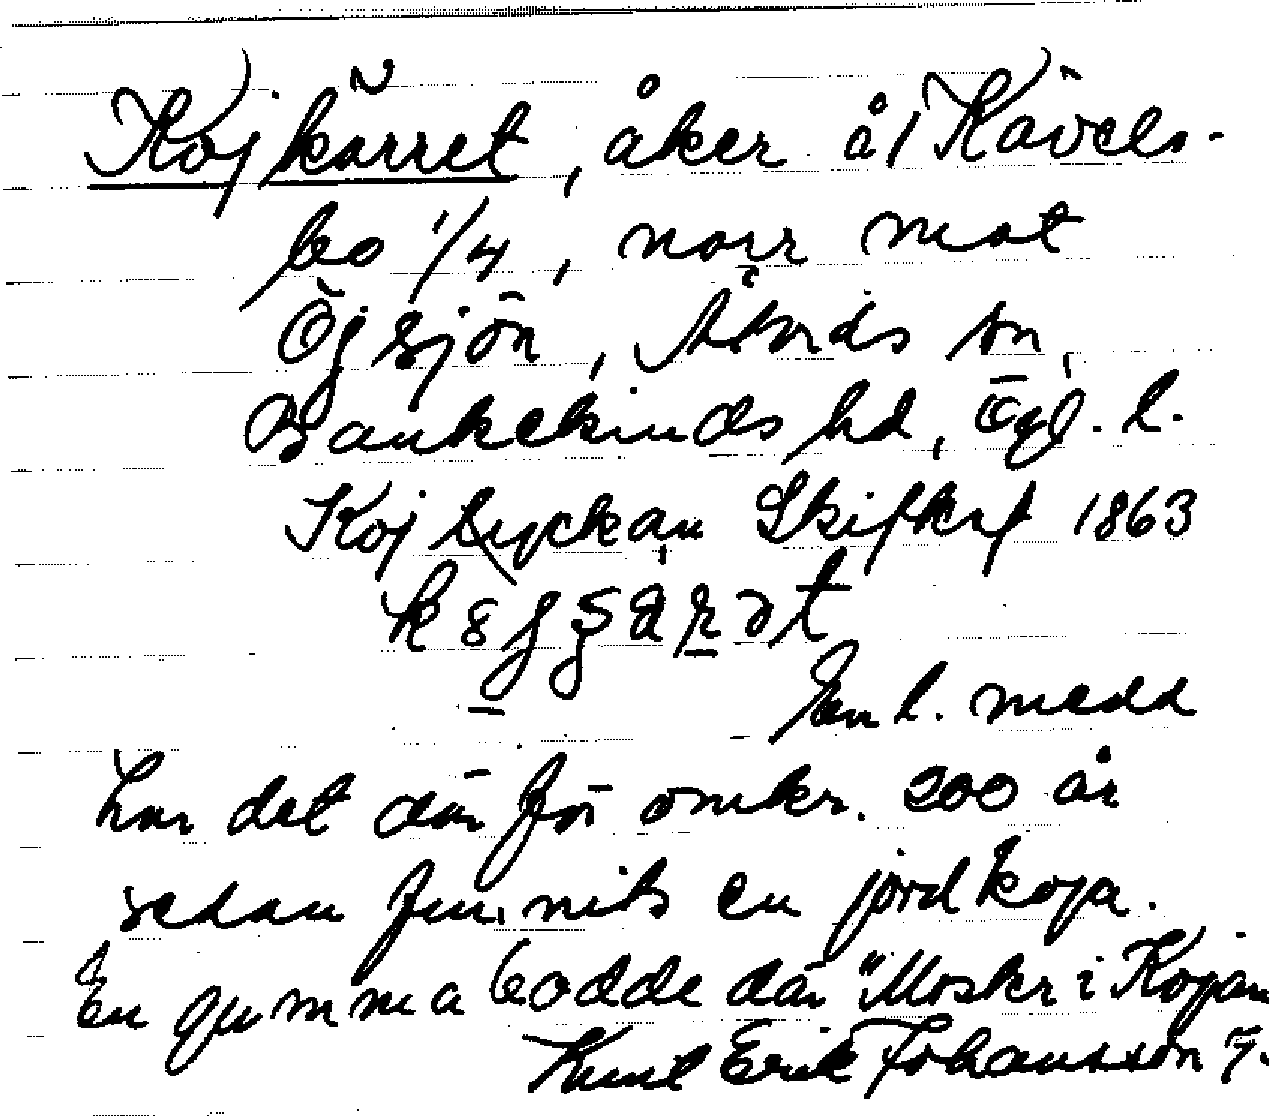 Kojkärret, åker å Kävels-
bo 1/4, norr mot
Ögsjön, Åtvids sn,
Bankekinds hd, Ögl. l.
Kojlyckan Skifkrf 1863
Enl. medd
har det där för omkr. 200 år
sedan funnits en jordkoja.
En gumma bodde där "Moster i Kojan
Knut Erik Johansson